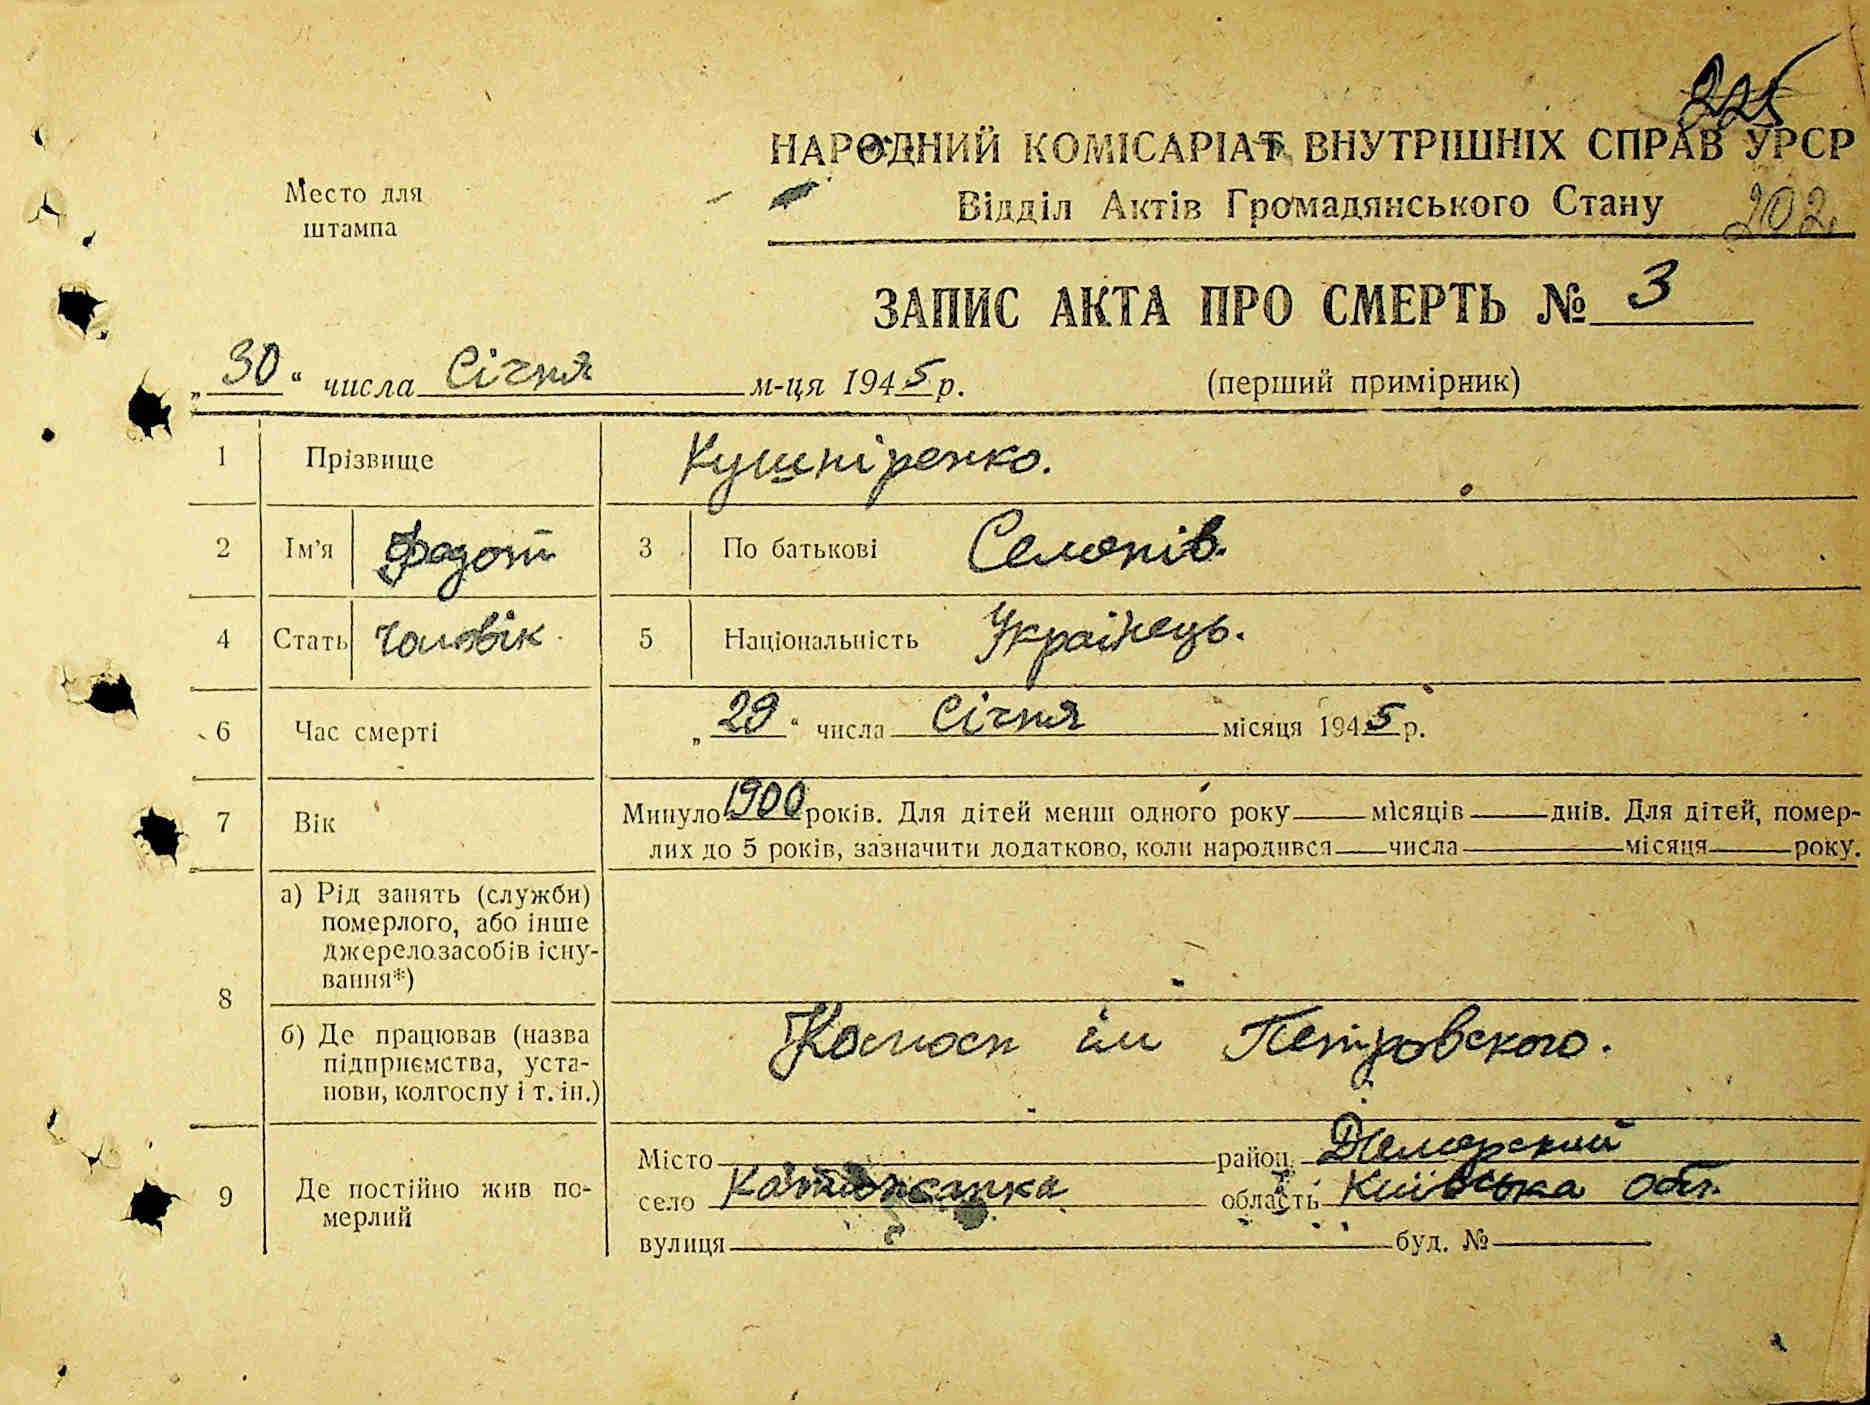 225
НАРОДНИЙ КОМІСАРІАТ ВНУТРІШНІХ СПРАВ УРСР
Место для штампа
Відділ Актів Громадянського Стану 202.
ЗАПИС АКТА ПРО СМЕРТЬ № 3
„30“ числа Січня м-ця 1945 р. (перший примірник)
1 Прізвище Кушніренко.
2 Ім'я Федот 3 По батькові Семенів.
4 Стать Чоловік 5 Національність Українець.
6 Час смерті „29“ числа Січня місяця 1945 р.
7 Вік Минуло 1900 років. Для дітей менш одного року місяців днів. Для дітей, помер-
лих до 5 років, зазначити додатково, коли народився числа місяця року.
8 а) Рід занять (служби)
померлого, або інше
джерело засобів існу-
вання*)
б) Де працював (назва
підприємства, уста-
нови, колгоспу і т. ін.)
Колгосп ім Петровского.
9 Де постійно жив по-
мерлий
Місто район Дімерский
село Катюжанка область Київська обл.
вулиця буд. №